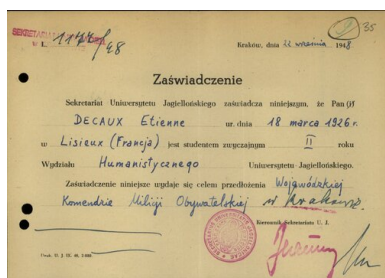 SEKRETARIAT
L. 1177/48
35
Kraków, dnia 22 września 1948
Zaświadczenie
Sekretariat Uniwersytetu Jagiellońskiego zaświadcza niniejszym, że Pan (i)
DECAUX Etienne ur. dnia 18 marca 1926 r.
w Lisieux (Francja) jest studentem zwyczajnym II roku
Wydziału Humanistycznego Uniwersytetu Jagiellońskiego.
Zaświadczenie niniejsze wydaje się celem przedłożenia Wojewódzkiej
Komendzie Milicji Obywatelskiej w Krakowie.
Kierownik Sekretariatu U. J.